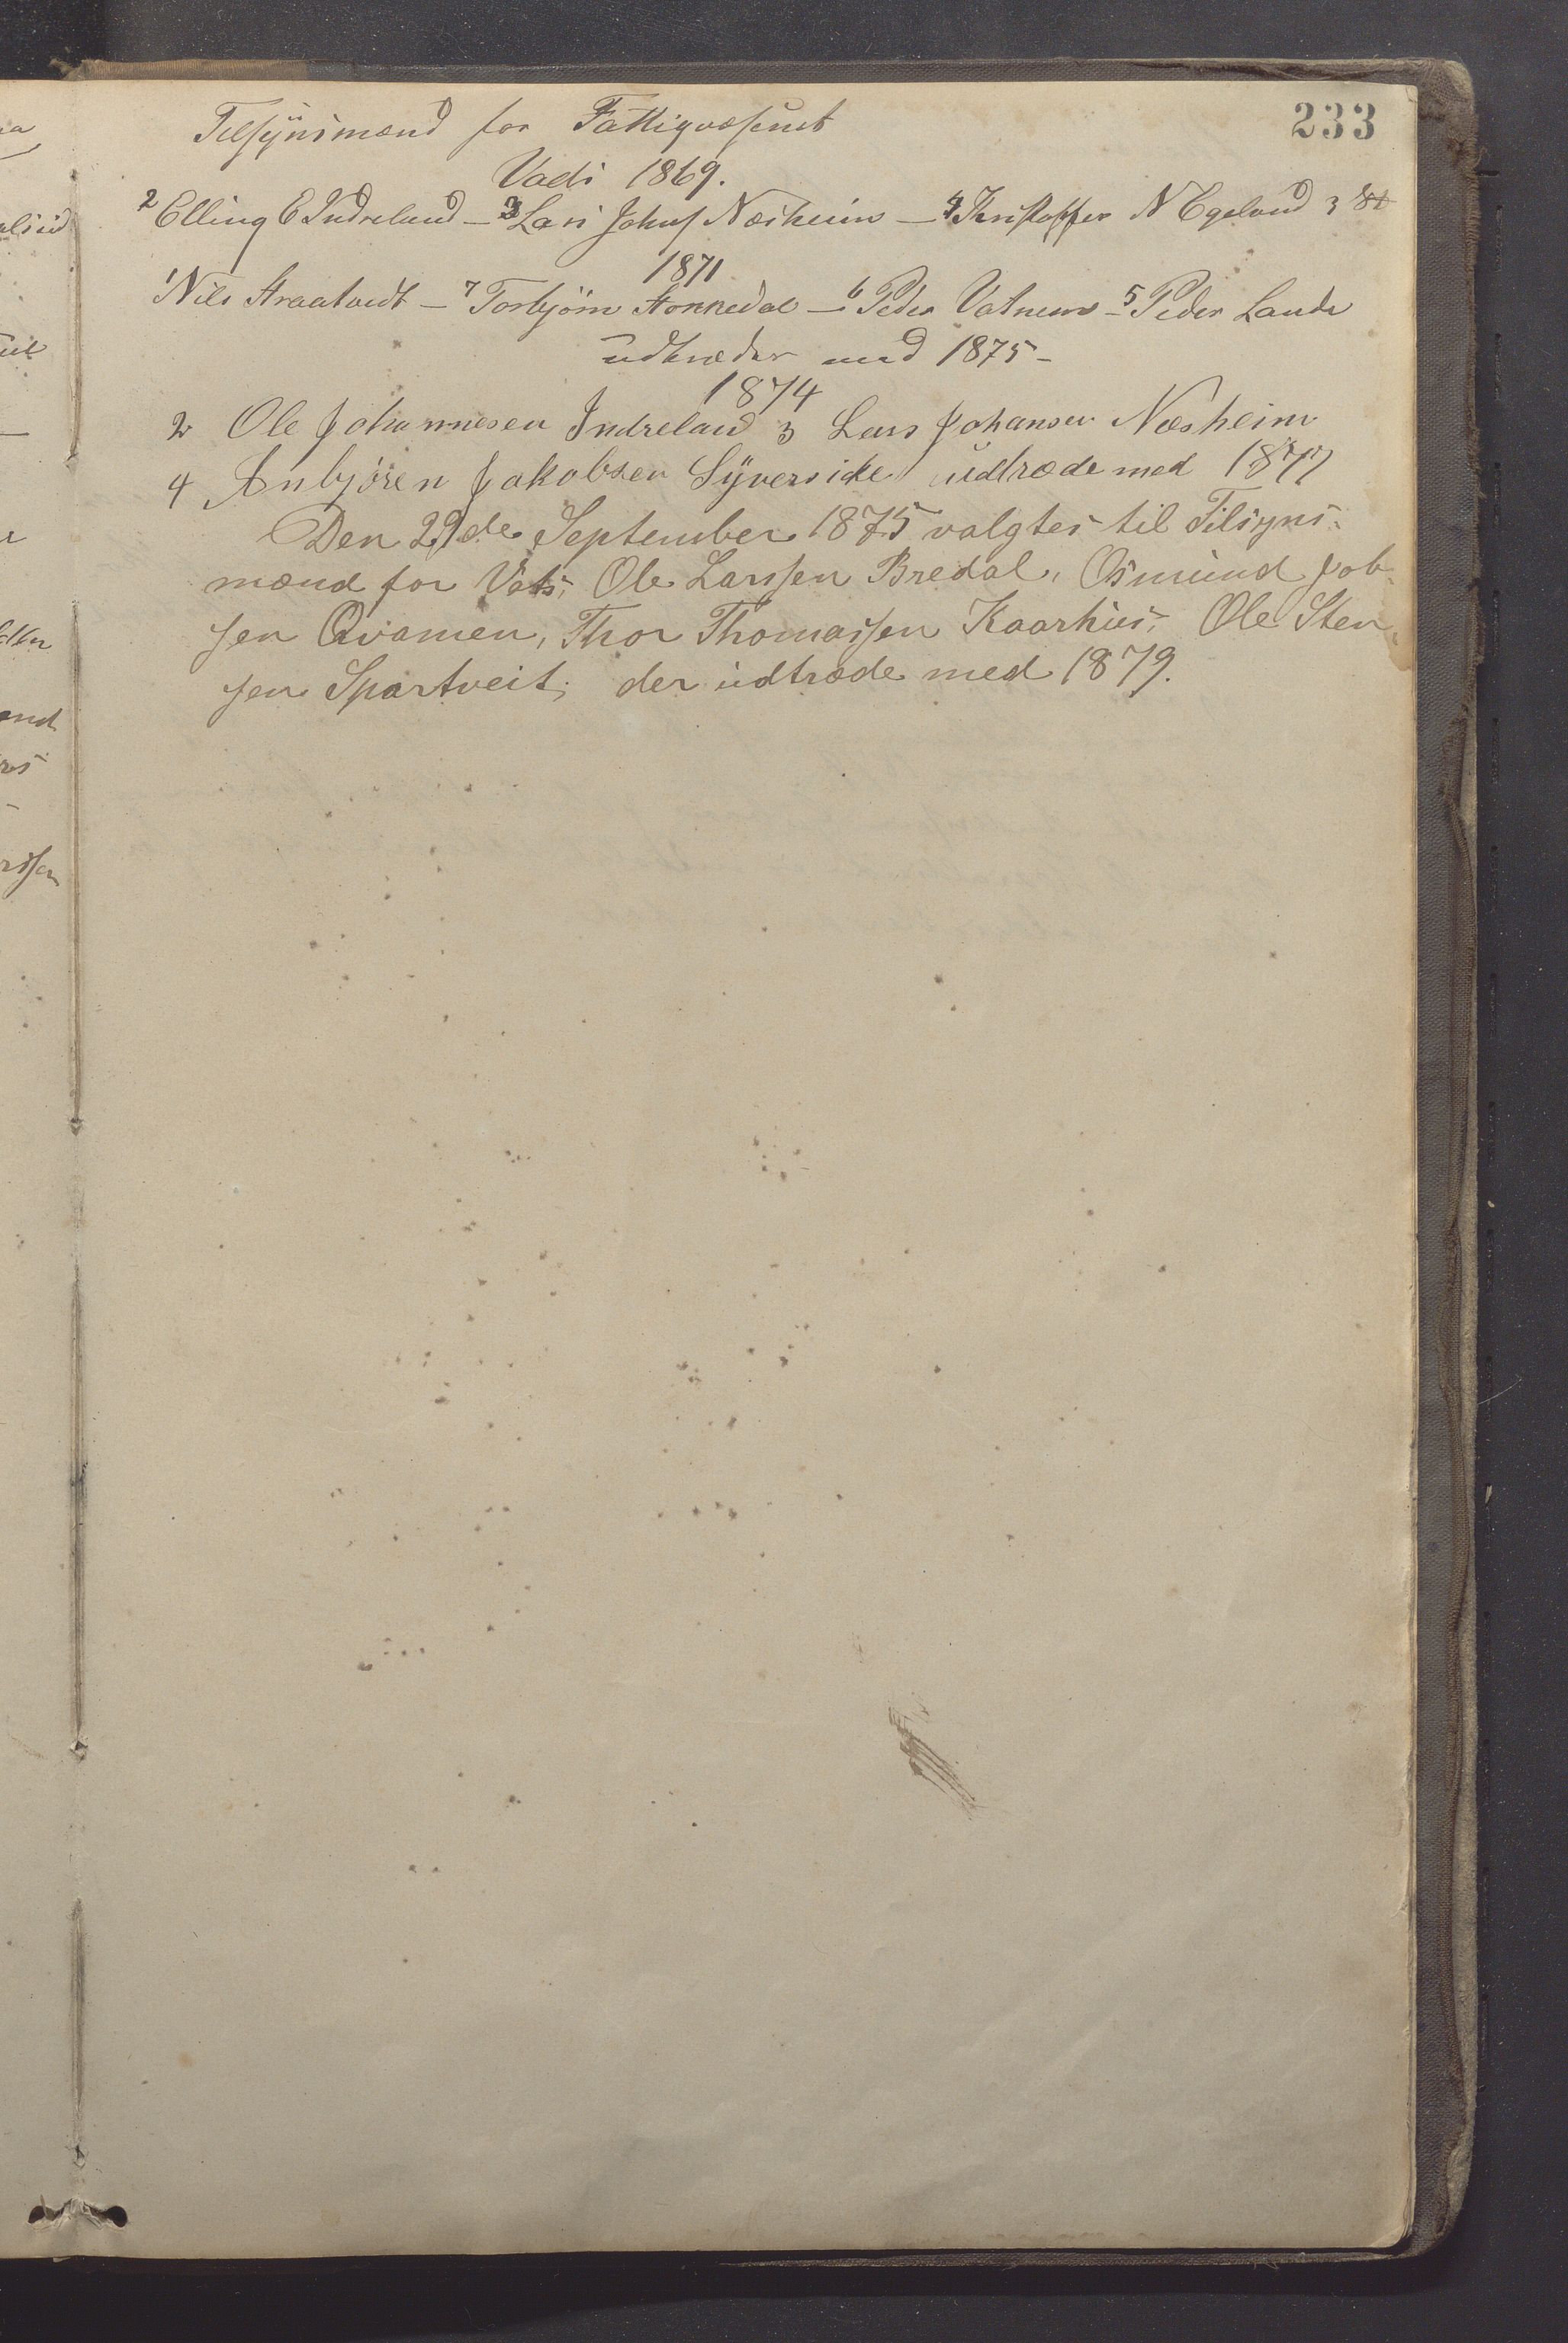 233
Tilsÿnsmænd for Fattigvæsenet
Vads 1869.
2 Elling E Indreland – 3 Lars Johns Næsheim – 4 Kristoffer N Egeland 3
1871
1 Nils Araatvedt – 7 Torbjörn Stokkedal – 6 Peder Vatnem – 5 Peder Lande
udtræder med 1875 –
1874
2 Ole Johannesen Indreland 3 Lars Johansen Næsheim
4 Anbjören Jakobsen Sÿversike udtræde med 1877
Den 29de September 1875 valgtes til Tilsyns-
mænd for Vats: Ole Larssen Bredal, Osmund Job-
sen Qvamen, Thor Thomassen Kaarhus, Ole Sten-
sen Spartveit; der udtræde med 1879.